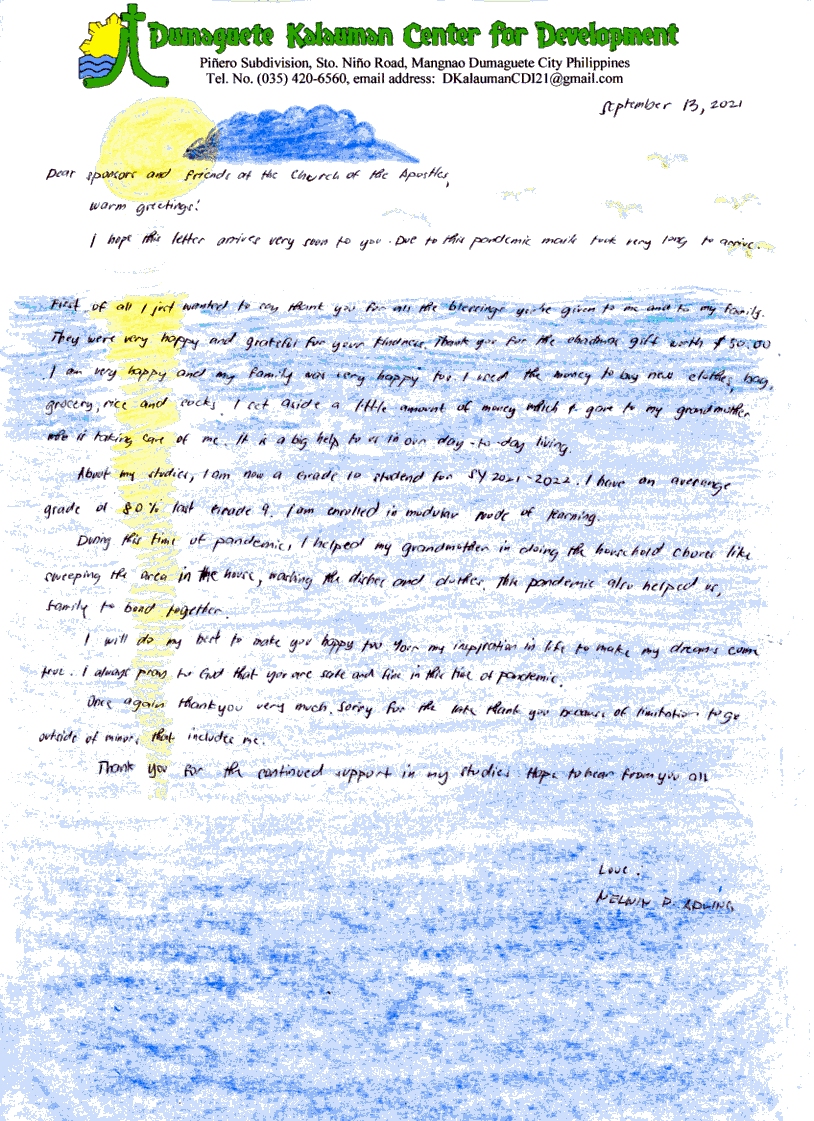 Dumaguete Kalauman Center for Development
Piñero Subdivision, Sto. Niño Road, Mangnao Dumaguete City Philippines
Tel. No. (035) 420-6560, email address: DKalaumanCDI21@gmail.com
September 13, 2021
Dear sponsors and friends at the Church of the Apostles,
Warm greetings!
I hope this letter arrives very soon to you. Due to this pandemic mails took very long to arrive.
First of all I just wanted to say thank you for all the blessings you've given to me and to my family.
They were very happy and grateful for your kindness. Thank you for the gift worth $ 50.00
I am very happy and my family was very happy too. I used the money to buy new clothes, bag,
grocery, rice and socks. I set aside a little amount of money which I gave to my grandmother
who is taking care of me. It is a big help to us in our day-to-day living.
About my studies, I am now a Grade 10 studend for SY 2021-2022. I have an averange
grade of 80% last Grade 9. I am enrolled in modular mode of learning.
During this time of pandemic, I helped my grandmother in doing the household chores like
sweeping the area in the house, washing the dishes and clothes. This pandemic also helped us,
family to bond together.
I will do my best to make you happy too. Your my inspiration in life to make my dreams come
true. I always pray to God that you are safe and fine in this time of pandemic.
Once again thankyou very much. Sorry for the late thank you because of limitation to go
outside of minors, that includes me.
Thank you for the continued support in my studies. Hope to hear from you all
Love,